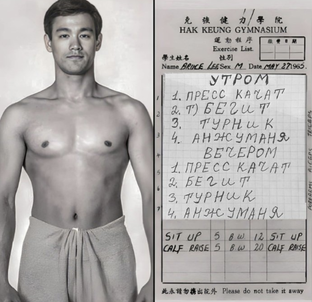 克強健力學院
HAK KEUNG GYMNASIUM
運動郁序
Exercise List.
學生姓名 性別
Name BRUCE LEE Sex M. Date MAY 27 1965.
УТРОМ
1. ПРЕСС КАЧАТ
2. Т) БЕГИТ
3. ТУРНИК
4. АНЖУМАНЯ
ВЕЧЕРОМ
1. ПРЕСС КАЧАТ
2. БЕГИТ
3. ТУРНИК
4. АНЖУМАНЯ
SIT UP 5 B.W. 12 SIT UP
CALF RAISE 5 B.W. 20 CALF RAISE
此表請勿攜出院外 Please do not take it away